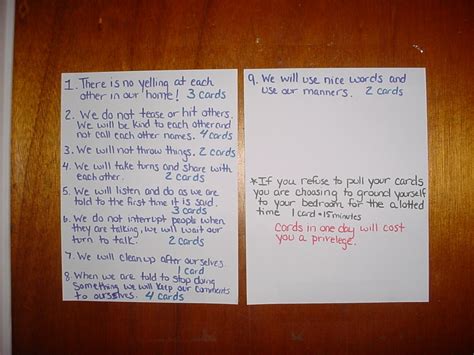 1. There is no yelling at each
other in our home! 3 cards
2. We do not tease or hit others.
We will be kind to each other and
not call each other names. 4 cards
3. We will not throw things. 2 cards
4. We will take turns and share with
each other. 2 cards
5. We will listen and do as we are
told to the first time it is said.
3 cards
6. We do not interrupt people when
they are talking, we will wait our
turn to talk. 2 cards
7. We will clean up after ourselves.
1 card
8 When we are told to stop doing
something we will keep our comments
to ourselves. 4 cards
9. We will use nice words and
use our manners. 2 cards
*If you refuse to pull your cards
you are choosing to ground yourself
to your bedroom for the alotted
time 1 card = 15 minutes
Cards in one day will cost
you a privelege.